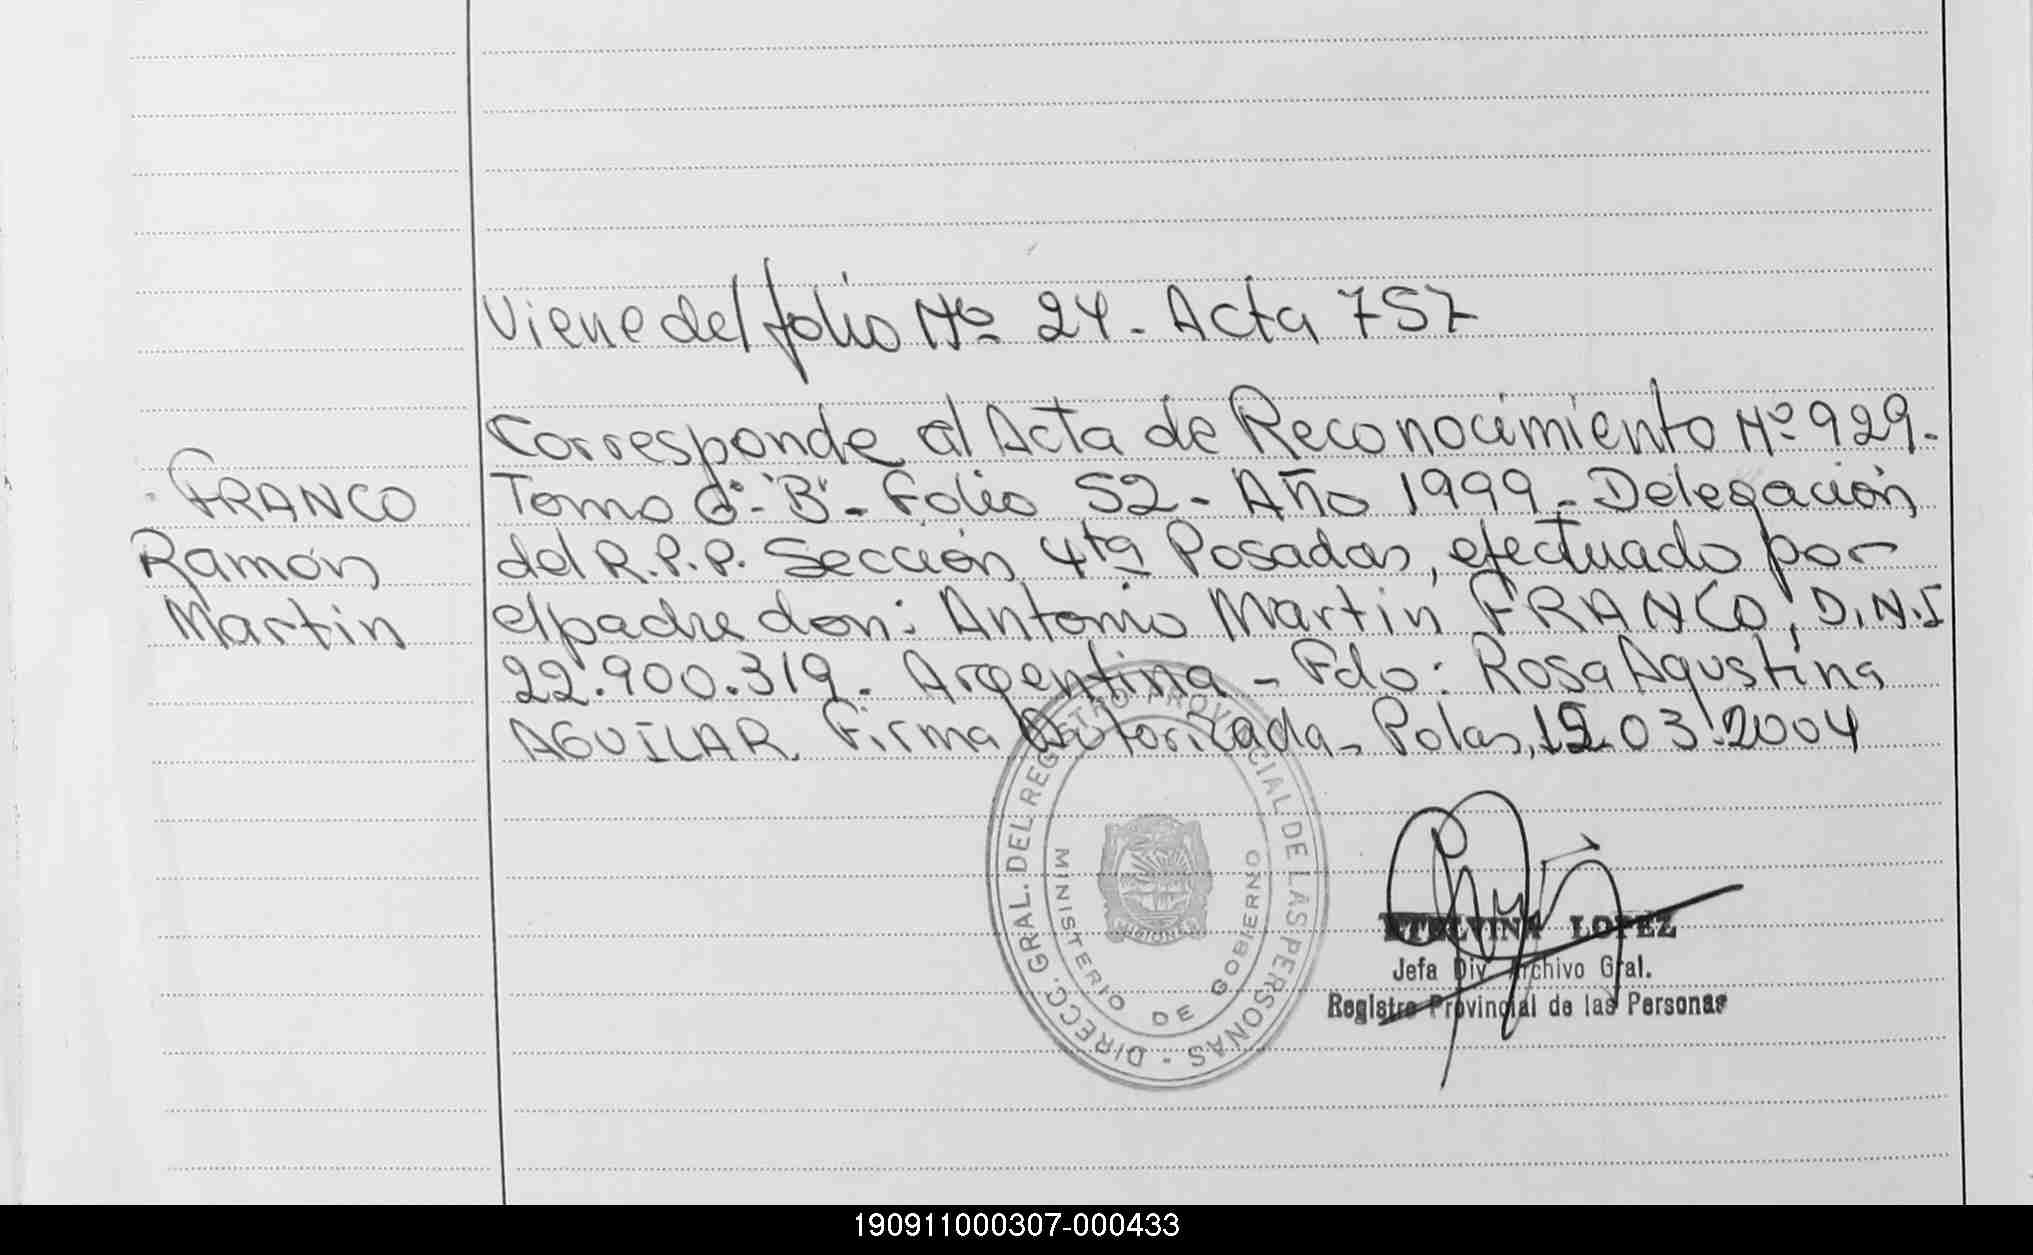 Viene del folio Nº 24 - Acta 757
Corresponde al Acta de Reconocimiento Nº 929.
Tomo "B" - Folio 52 - Año 1999 - Delegación
del R.P.P. Sección 4ta Posadas, efectuado por
el padre don: Antonio Martin FRANCO, D.N.I
22.900.319. Argentina - Fdo: Rosa Agustina
AGUILAR Firma Autorizada - Pdas, 03.2004
FRANCO
Ramón
Martin
DIRECC. GRAL. DEL REGISTRO PROVINCIAL DE LAS PERSONAS -
MINISTERIO DE GOBIERNO
MISIONES
LOPEZ
Jefa Div. Archivo Gral.
Registro Provincial de las Personas
190911000307-000433